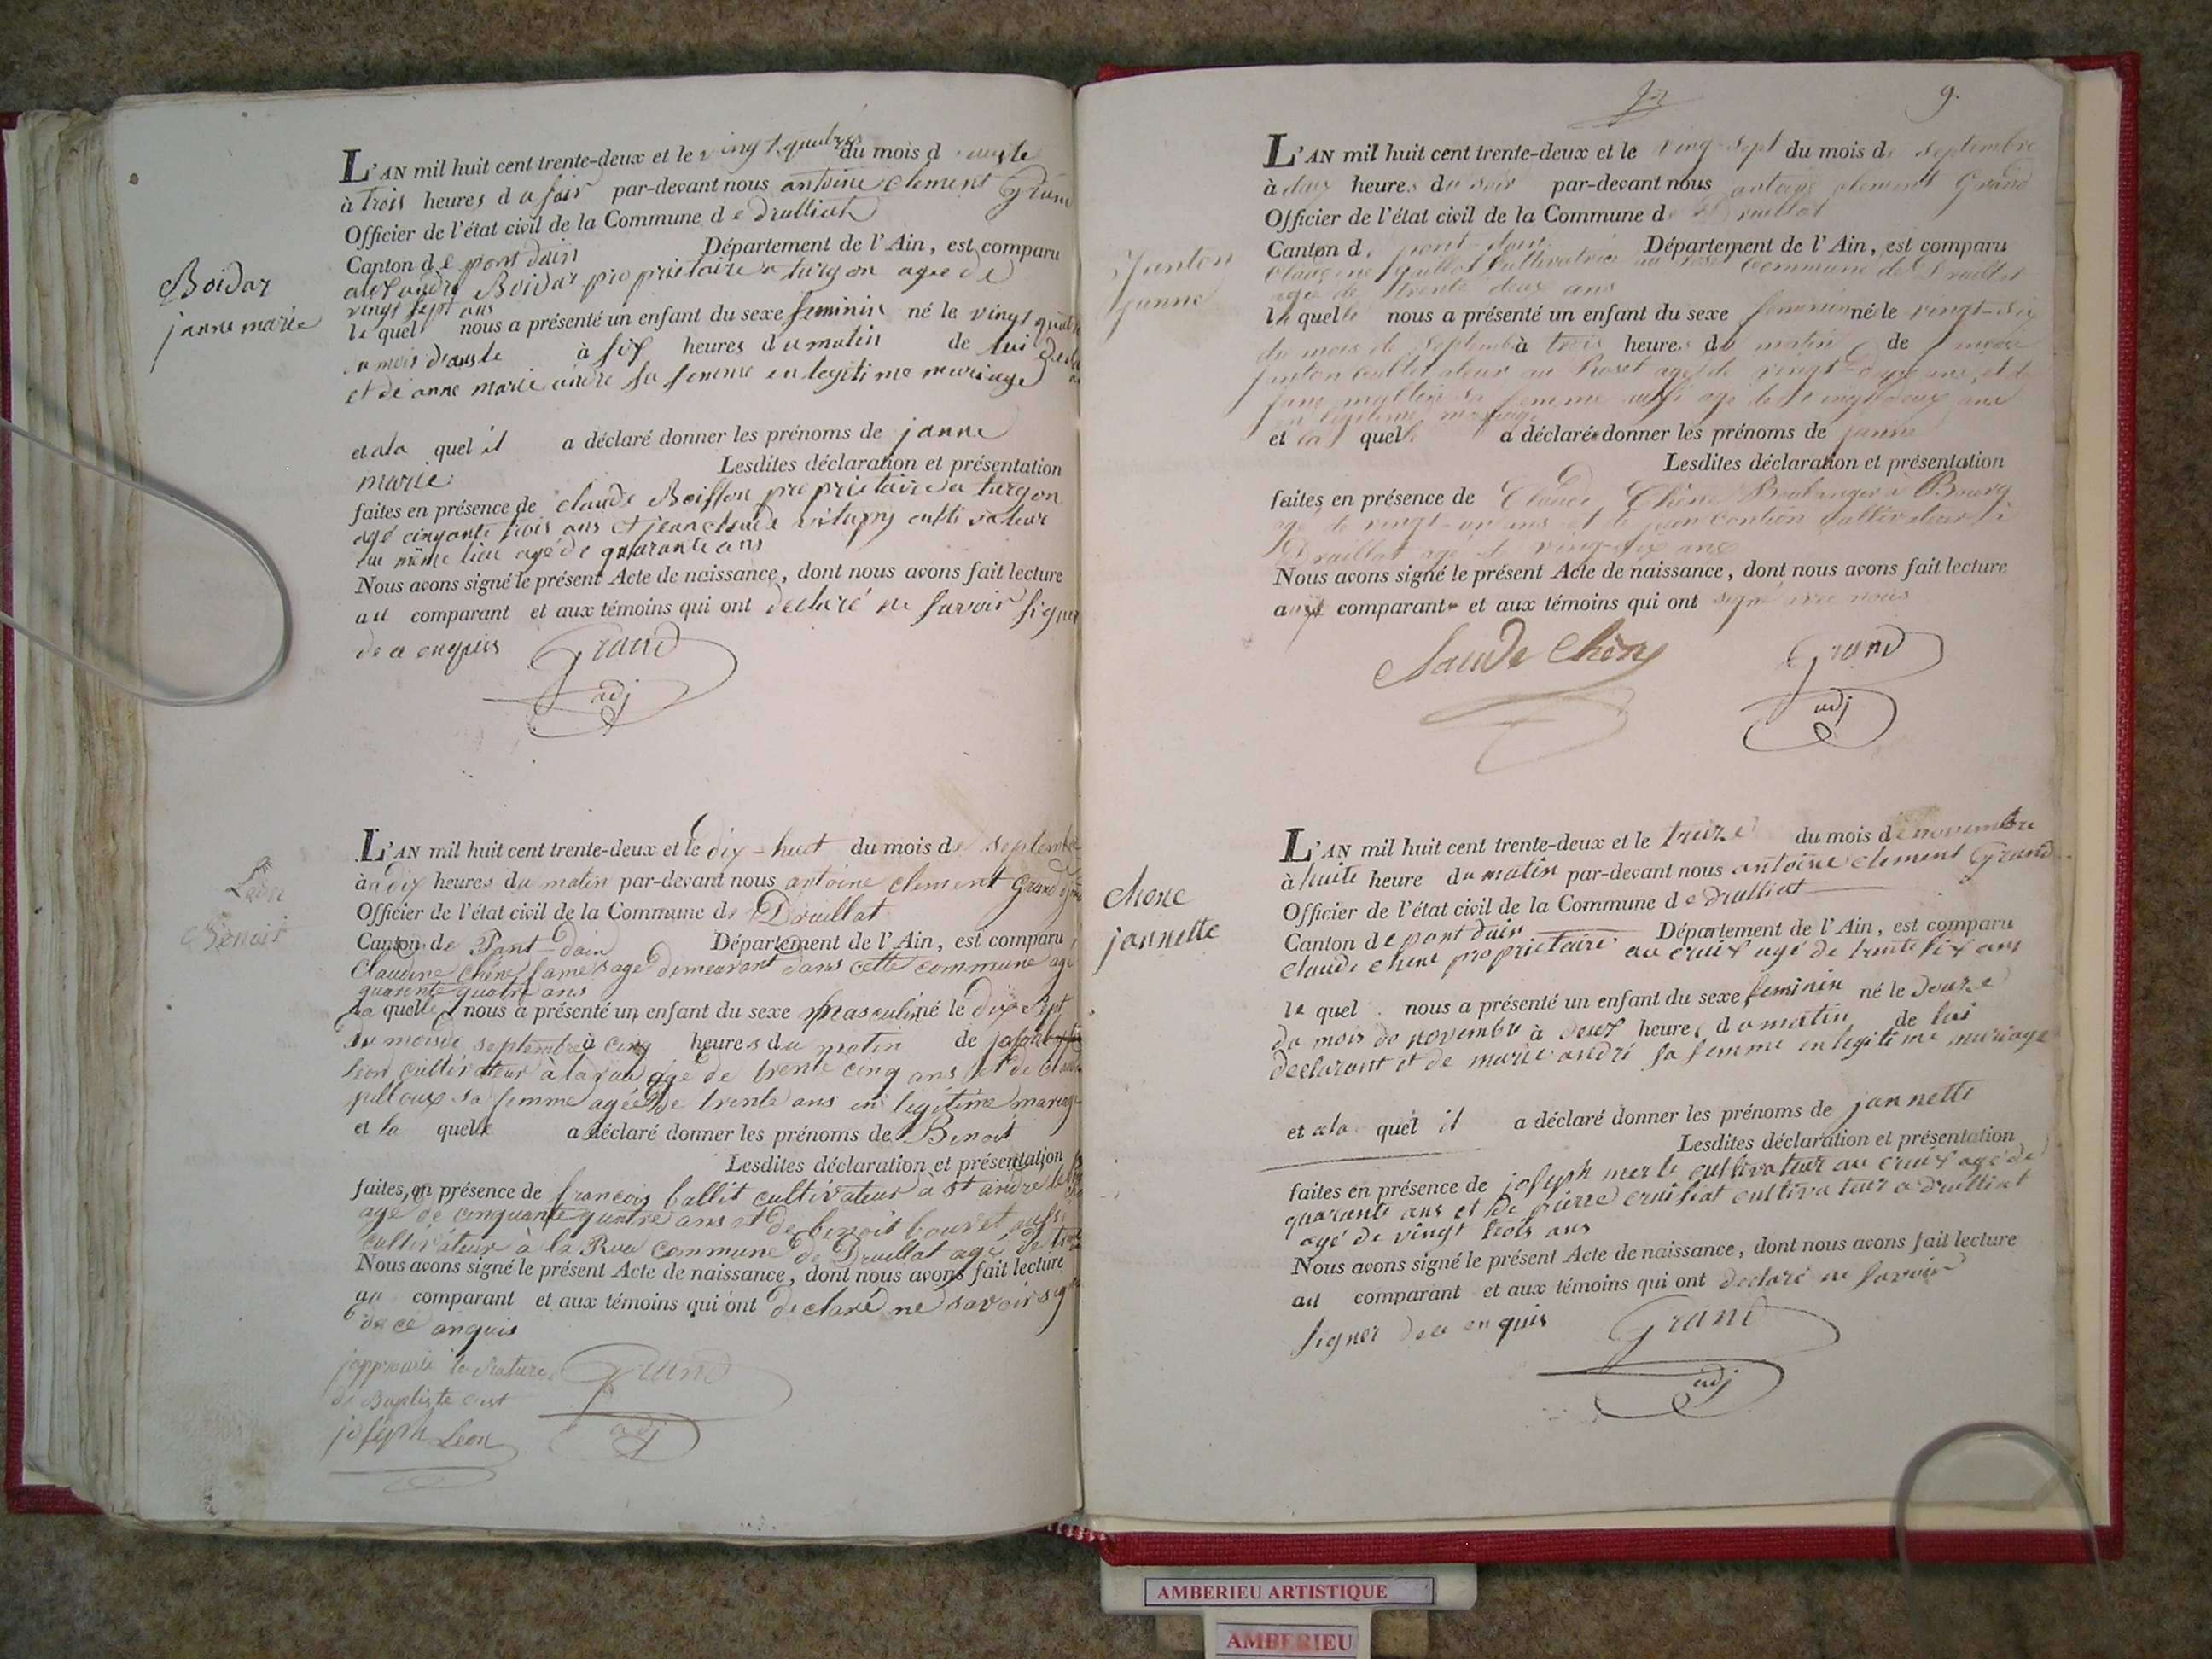 Boidar
janne marie
L'AN mil huit cent trente-deux et le vingt quatre du mois d auste
à trois heures du soir par-devant nous antoine clement Grand
Officier de l'état civil de la Commune de drulliat
Canton de pont dain Département de l'Ain, est comparu
Boidar proprietaire a turgon age de
vingt sept ans
le quel nous a présenté un enfant du sexe feminin né le vingt quatre
du mois dauste à six heures du matin de lui
et de anne marie andre sa femme en legitime mariage
et ala quel il a déclaré donner les prénoms de janne
marie Lesdites déclaration et présentation
faites en présence de claude Boisson proprietaire a turgon
agé cinqante trois ans et jean claude cultivateur
du même lieu agé de quarante ans
Nous avons signé le présent Acte de naissance, dont nous avons fait lecture
au comparant et aux témoins qui ont declaré ne savoir signer
de ce enquis Grand
adj
Leon
Benoit
L'AN mil huit cent trente-deux et le dix-huit du mois de septembre
à dix heures du matin par-devant nous antoine clement Grand
Officier de l'état civil de la Commune de Druillat
Canton de Pont-dain Département de l'Ain, est comparu
Claudine Chêne demeurant dans cette commune agé
quarente quatre ans
la quelle nous a présenté un enfant du sexe Masculin né le dix sept
du mois de septembre à cinq heures du matin de
leon cultivateur à la rua agé de trente cinq ans et de
pelloux sa femme agée de trente ans en legitime mariage
et la quelle a déclaré donner les prénoms de Benoit
Lesdites déclaration et présentation
faites en présence de françois ballit cultivateur à st andre
agé de cinquante quatre ans et de benoit bouvet aussi
cultivateur à la Rua commune de Druillat agé de
Nous avons signé le présent Acte de naissance, dont nous avons fait lecture
au comparant et aux témoins qui ont declaré ne savoir signer
de ce anquis
japprouve la Rature Grand
de Baptiste cest adj
joseph Leon
9.
Janton
janne
L'AN mil huit cent trente-deux et le ving-sept du mois de septembre
à deux heures du soir par-devant nous antoine clement Grand
Officier de l'état civil de la Commune de Druillat
Canton de pont-dain Département de l'Ain, est comparu
Claudine cultivatrice au commune de Druillat
agée de trente deux ans
la quelle nous a présenté un enfant du sexe feminin né le vingt-six
du mois de septembre à trois heures du matin de
janton cultivateur au Roset agé de vingt ans, et de
sa femme aussi agé de vingt deux ans
en légitime mariage
et la quelle a déclaré donner les prénoms de janne
Lesdites déclaration et présentation
faites en présence de Claude Chêne Boulanger à Bourg
agé de vingt-un ans et de jean cultivateur à
Druillat agé de ving-six ans
Nous avons signé le présent Acte de naissance, dont nous avons fait lecture
aux comparant et aux témoins qui ont signé avec nous
Claude Chêne Grand
adj
chene
jannette
L'AN mil huit cent trente-deux et le treize du mois de novembre
à huite heure du matin par-devant nous antoine clement Grand
Officier de l'état civil de la Commune de drulliat
Canton de pont dain Département de l'Ain, est comparu
Claude chene proprietaire au cruix agé de trente six ans
le quel nous a présenté un enfant du sexe feminin né le douze
du mois de novembre à deux heures du matin de lui
declarant et de marie andré sa femme en legitime mariage
et ala quel il a déclaré donner les prénoms de jannette
Lesdites déclaration et présentation
faites en présence de joseph merle cultivateur au cruix agé de
quarante ans et de pierre cruisiat cultivateur a drulliat
agé de vingt trois ans
Nous avons signé le présent Acte de naissance, dont nous avons fait lecture
au comparant et aux témoins qui ont declaré ne savoir
signer de ce enquis Grand
adj
AMBERIEU ARTISTIQUE
AMBERIEU